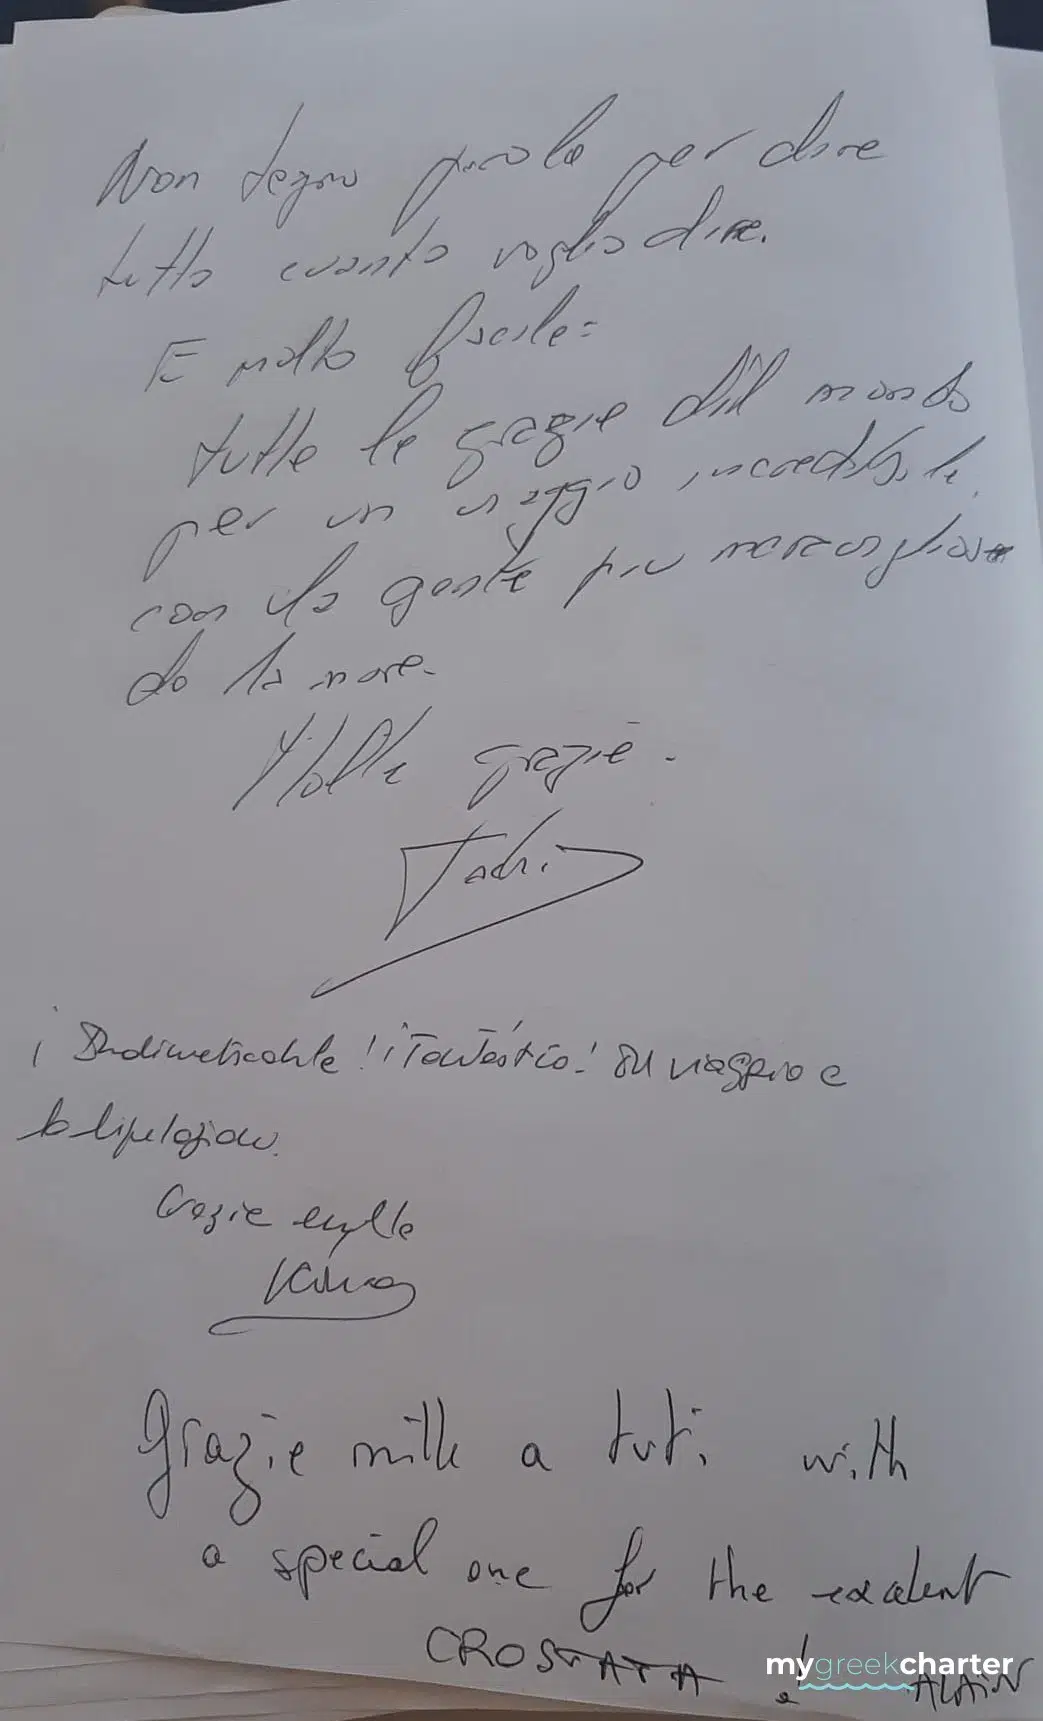 Non tegno parola per dire
tutto cuanto voglio dire.
E molto facile:
tutte le grazie dil mondo
per un viaggio incredibile,
con la gente piu meravigliosa
do la mare.
Molte grazie.
¡Indimeticable! ¡Fantástico! Su viaggio e
Grazie mille
Grazie mille a tuti, with
a special one for the exalent
CROSTATA !
ALAIN
mygreekcharter